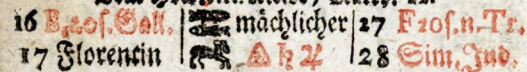 16 B. 20s. Gall. mächlicher 27 F20s.n.Tr.
17 Florentin △ ♄ ♃ 28 Sim. Jud.